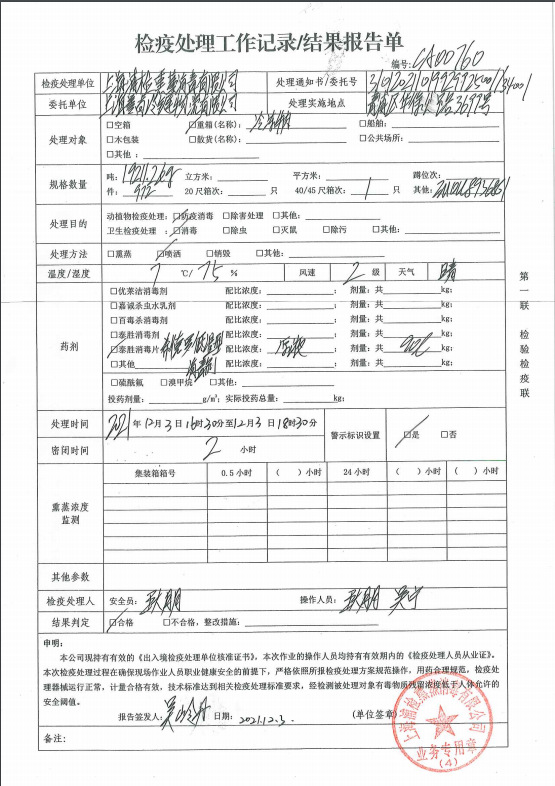 检疫处理工作记录/结果报告单
编号: CA00760
检疫处理单位 处理通知书/委托号
委托单位 处理实施地点
处理对象 □空箱 □重箱(名称): □船舶:
□木包装 □散货(名称): □公共场所:
□其他:
规格数量 吨: 立方米: 平方米: 蹲位次:
件: 972 20尺箱次: 只 40/45尺箱次: 1 只 其他:
处理目的 动植物检疫处理: □防疫消毒 □除害处理 □其他:
卫生检疫处理: □消毒 □除虫 □灭鼠 □除污 □其他:
处理方法 □熏蒸 □喷洒 □销毁 □其他:
温度/湿度 7 ℃/ 75 % 风速 2 级 天气 晴
药剂 □优莱洁消毒剂 配比浓度: 剂量: 共 kg;
□嘉诚杀虫水乳剂 配比浓度: 剂量: 共 kg;
□百毒杀消毒剂 配比浓度: 剂量: 共 kg;
□泰胜消毒剂 配比浓度: 剂量: 共 kg;
□泰胜消毒片 配比浓度: 原液 剂量: 共 kg;
□其他 消毒剂 配比浓度: 剂量: 共 kg;
□硫酰氟 □溴甲烷 □其他:
投药剂量: g/m³; 实际投药总量: kg;
处理时间 2021年12月3日16时30分至12月3日18时30分 警示标识设置 □是 □否
密闭时间 2 小时
熏蒸浓度监测 集装箱箱号 0.5小时 ( )小时 24小时 ( )小时 ( )小时
其他参数
检疫处理人 安全员: 耿朋 操作人员: 耿朋 吴宁
结果判定 □合格 □不合格,整改措施:
申明:
本公司现持有有效的《出入境检疫处理单位核准证书》,本次作业的操作人员均持有有效期内的《检疫处理人员从业证》。
本次检疫处理过程在确保现场作业人员职业健康安全的前提下,严格依照所报检疫处理方案规范操作,用药合理规范,检疫处
理器械运行正常,计量合格有效,技术标准达到相关检疫处理标准要求,经检测被处理对象有毒物质残留浓度低于人体允许的
安全阈值。
报告签发人: 日期: 2021.12.3. (单位签章)
业务专用章
(4)
备注:
第一联 检验检疫联